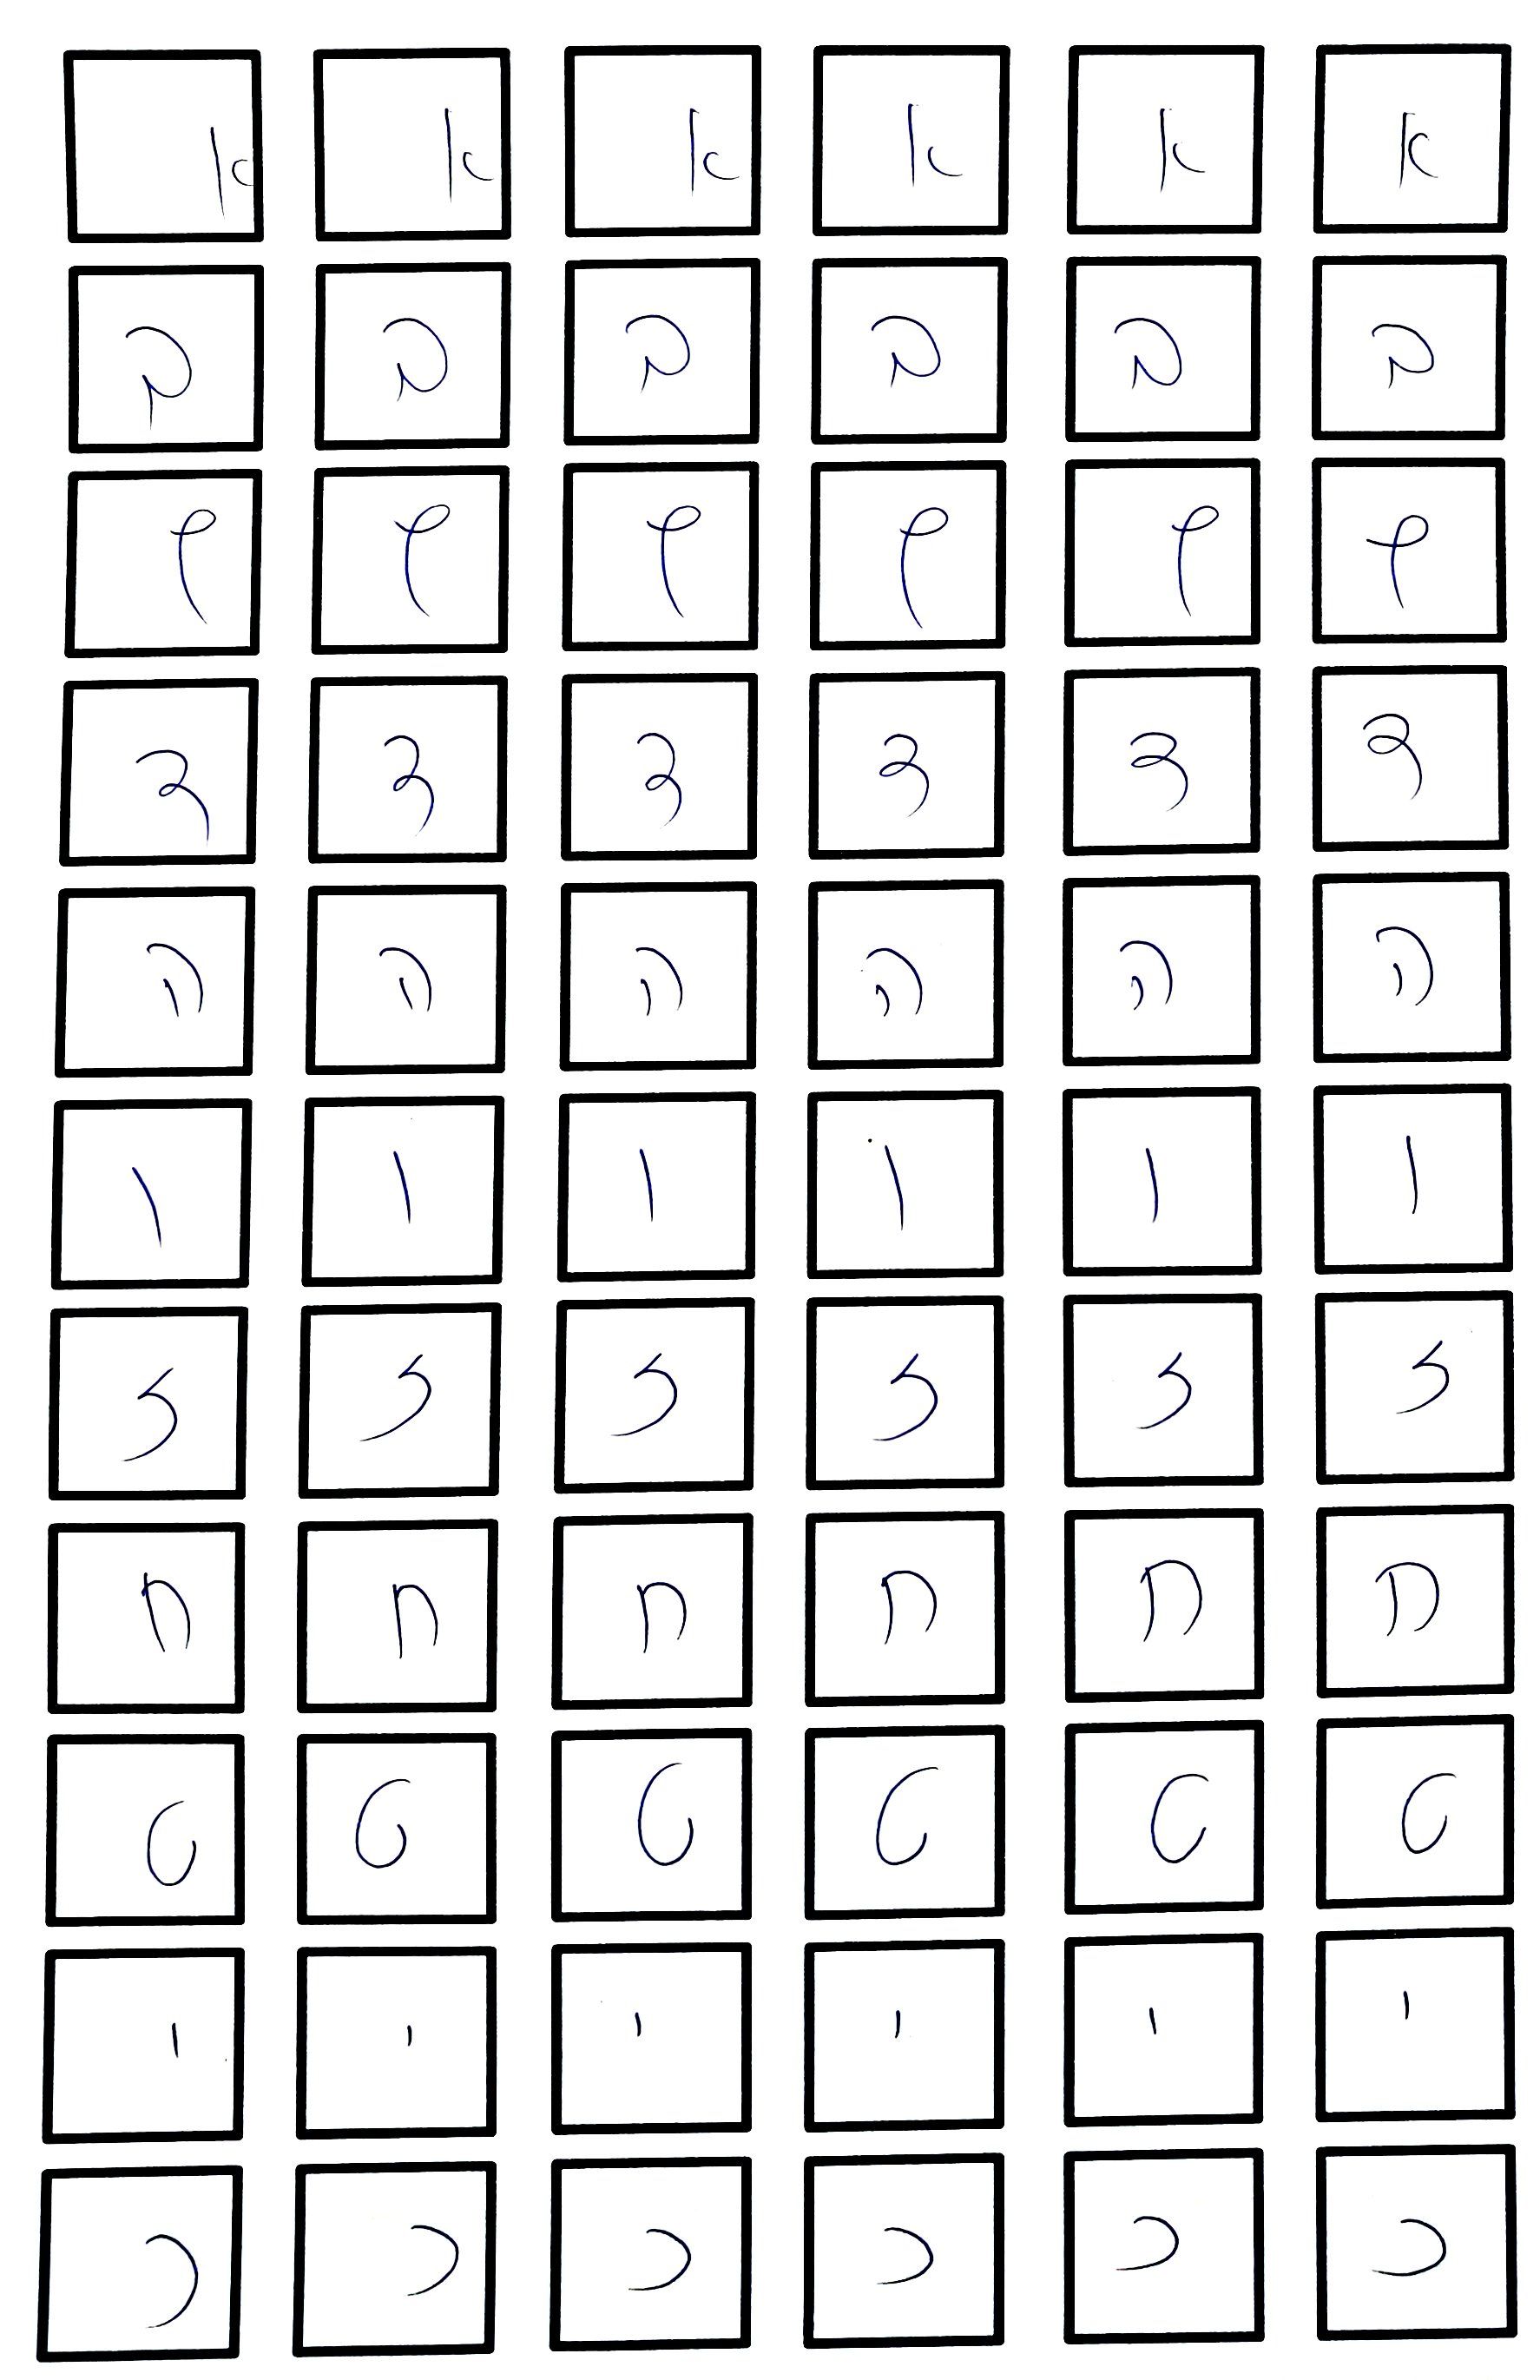 א א א א א א
ב ב ב ב ב ב
ג ג ג ג ג ג
ד ד ד ד ד ד
ה ה ה ה ה ה
ו ו ו ו ו ו
ז ז ז ז ז ז
ח ח ח ח ח ח
ט ט ט ט ט ט
י י י י י י
כ כ כ כ כ כ